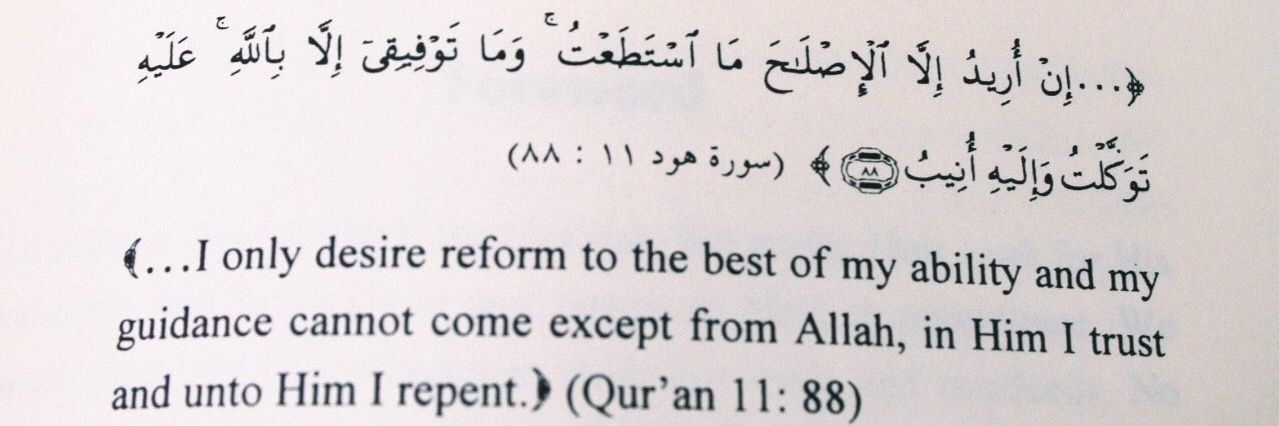 ﴿...إِنْ أُرِيدُ إِلَّا ٱلْإِصْلَـٰحَ مَا ٱسْتَطَعْتُ ۚ وَمَا تَوْفِيقِىٓ إِلَّا بِٱللَّهِ ۚ عَلَيْهِ
تَوَكَّلْتُ وَإِلَيْهِ أُنِيبُ ٨٨ ﴾ (سورة هود ١١ : ٨٨)
﴾...I only desire reform to the best of my ability and my
guidance cannot come except from Allah, in Him I trust
and unto Him I repent.﴿ (Qur'an 11: 88)